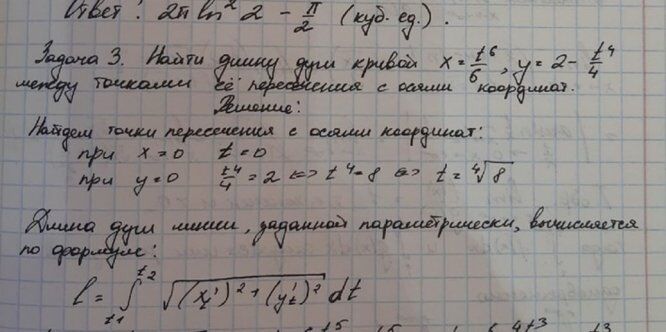 Ответ: 2π ln² 2 - π/2 (куб. ед.).
Задача 3. Найти длину дуги кривой x = t⁶/6, y = 2 - t⁴/4
между точками её пересечения с осями координат.
Решение:
Найдем точки пересечения с осями координат:
при x=0 t=0
при y=0 t⁴/4 = 2 <=> t⁴=8 <=> t = ⁴√8
Длина дуги линии, заданной параметрически, вычисляется
по формуле:
l = ∫_{t1}^{t2} √((x'_t)² + (y'_t)²) dt